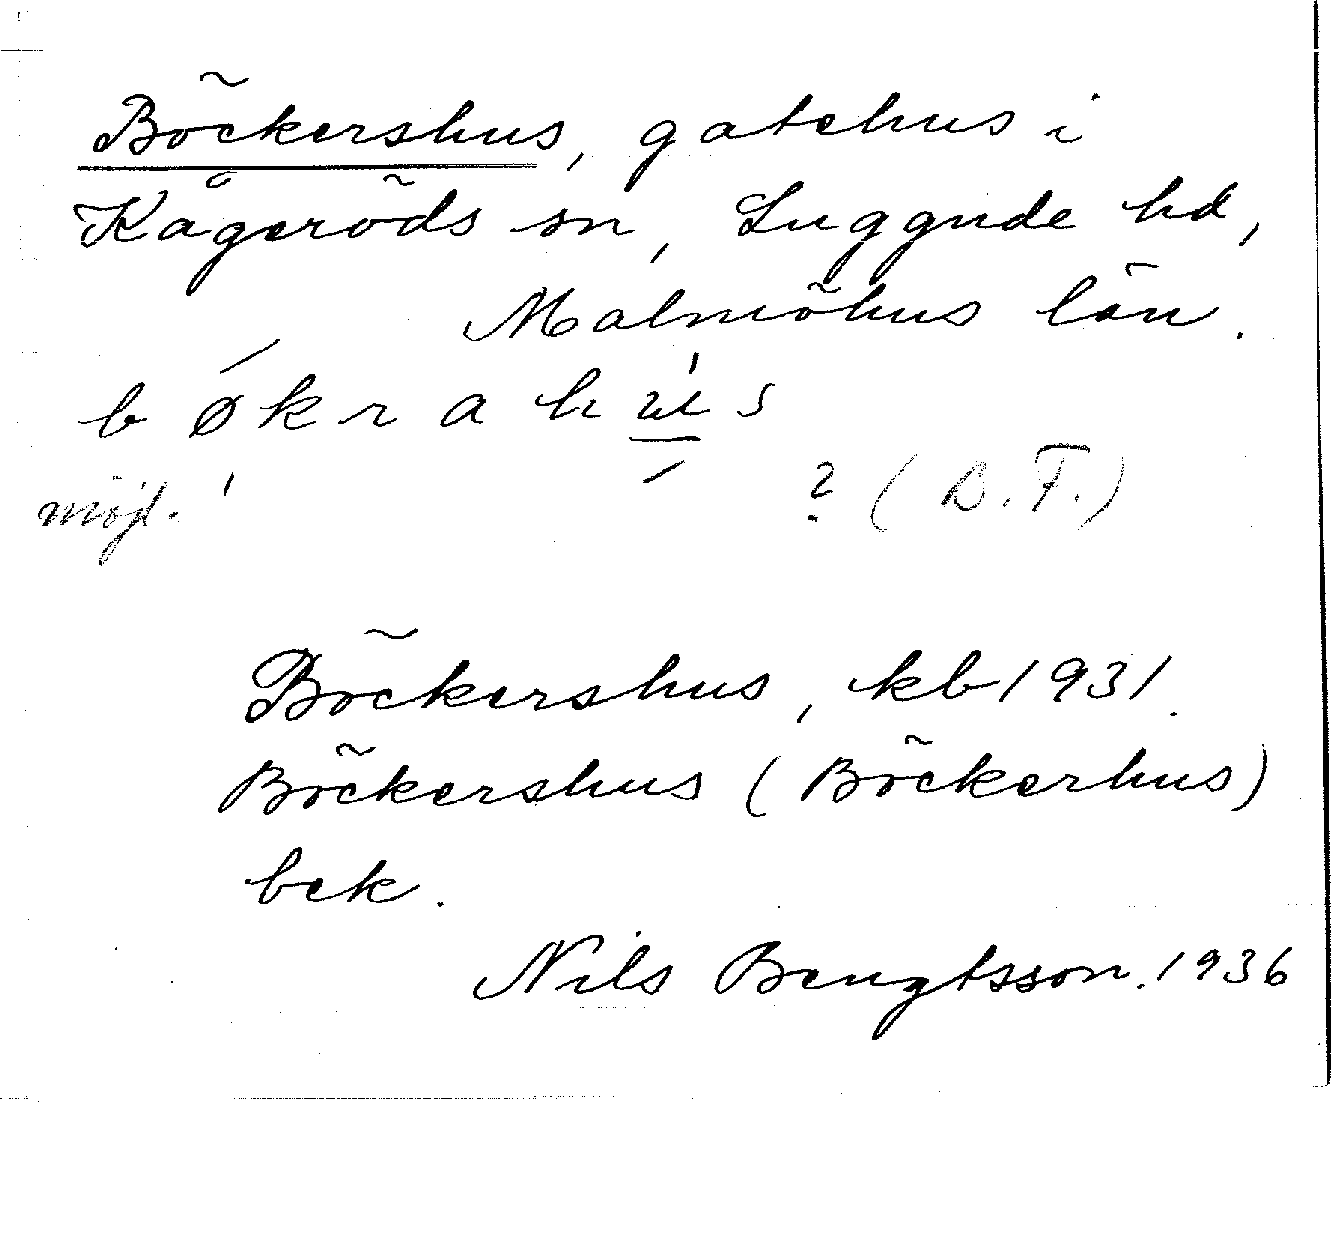 Böckershus, gatehus i
Kågeröds sn, Luggude hd,
Malmöhus län.
bøkrahus
möjl. ' ? (B.F.)
Böckershus, kb 1931.
Böckershus (Böckerhus)
bek.
Nils Bengtsson. 1936